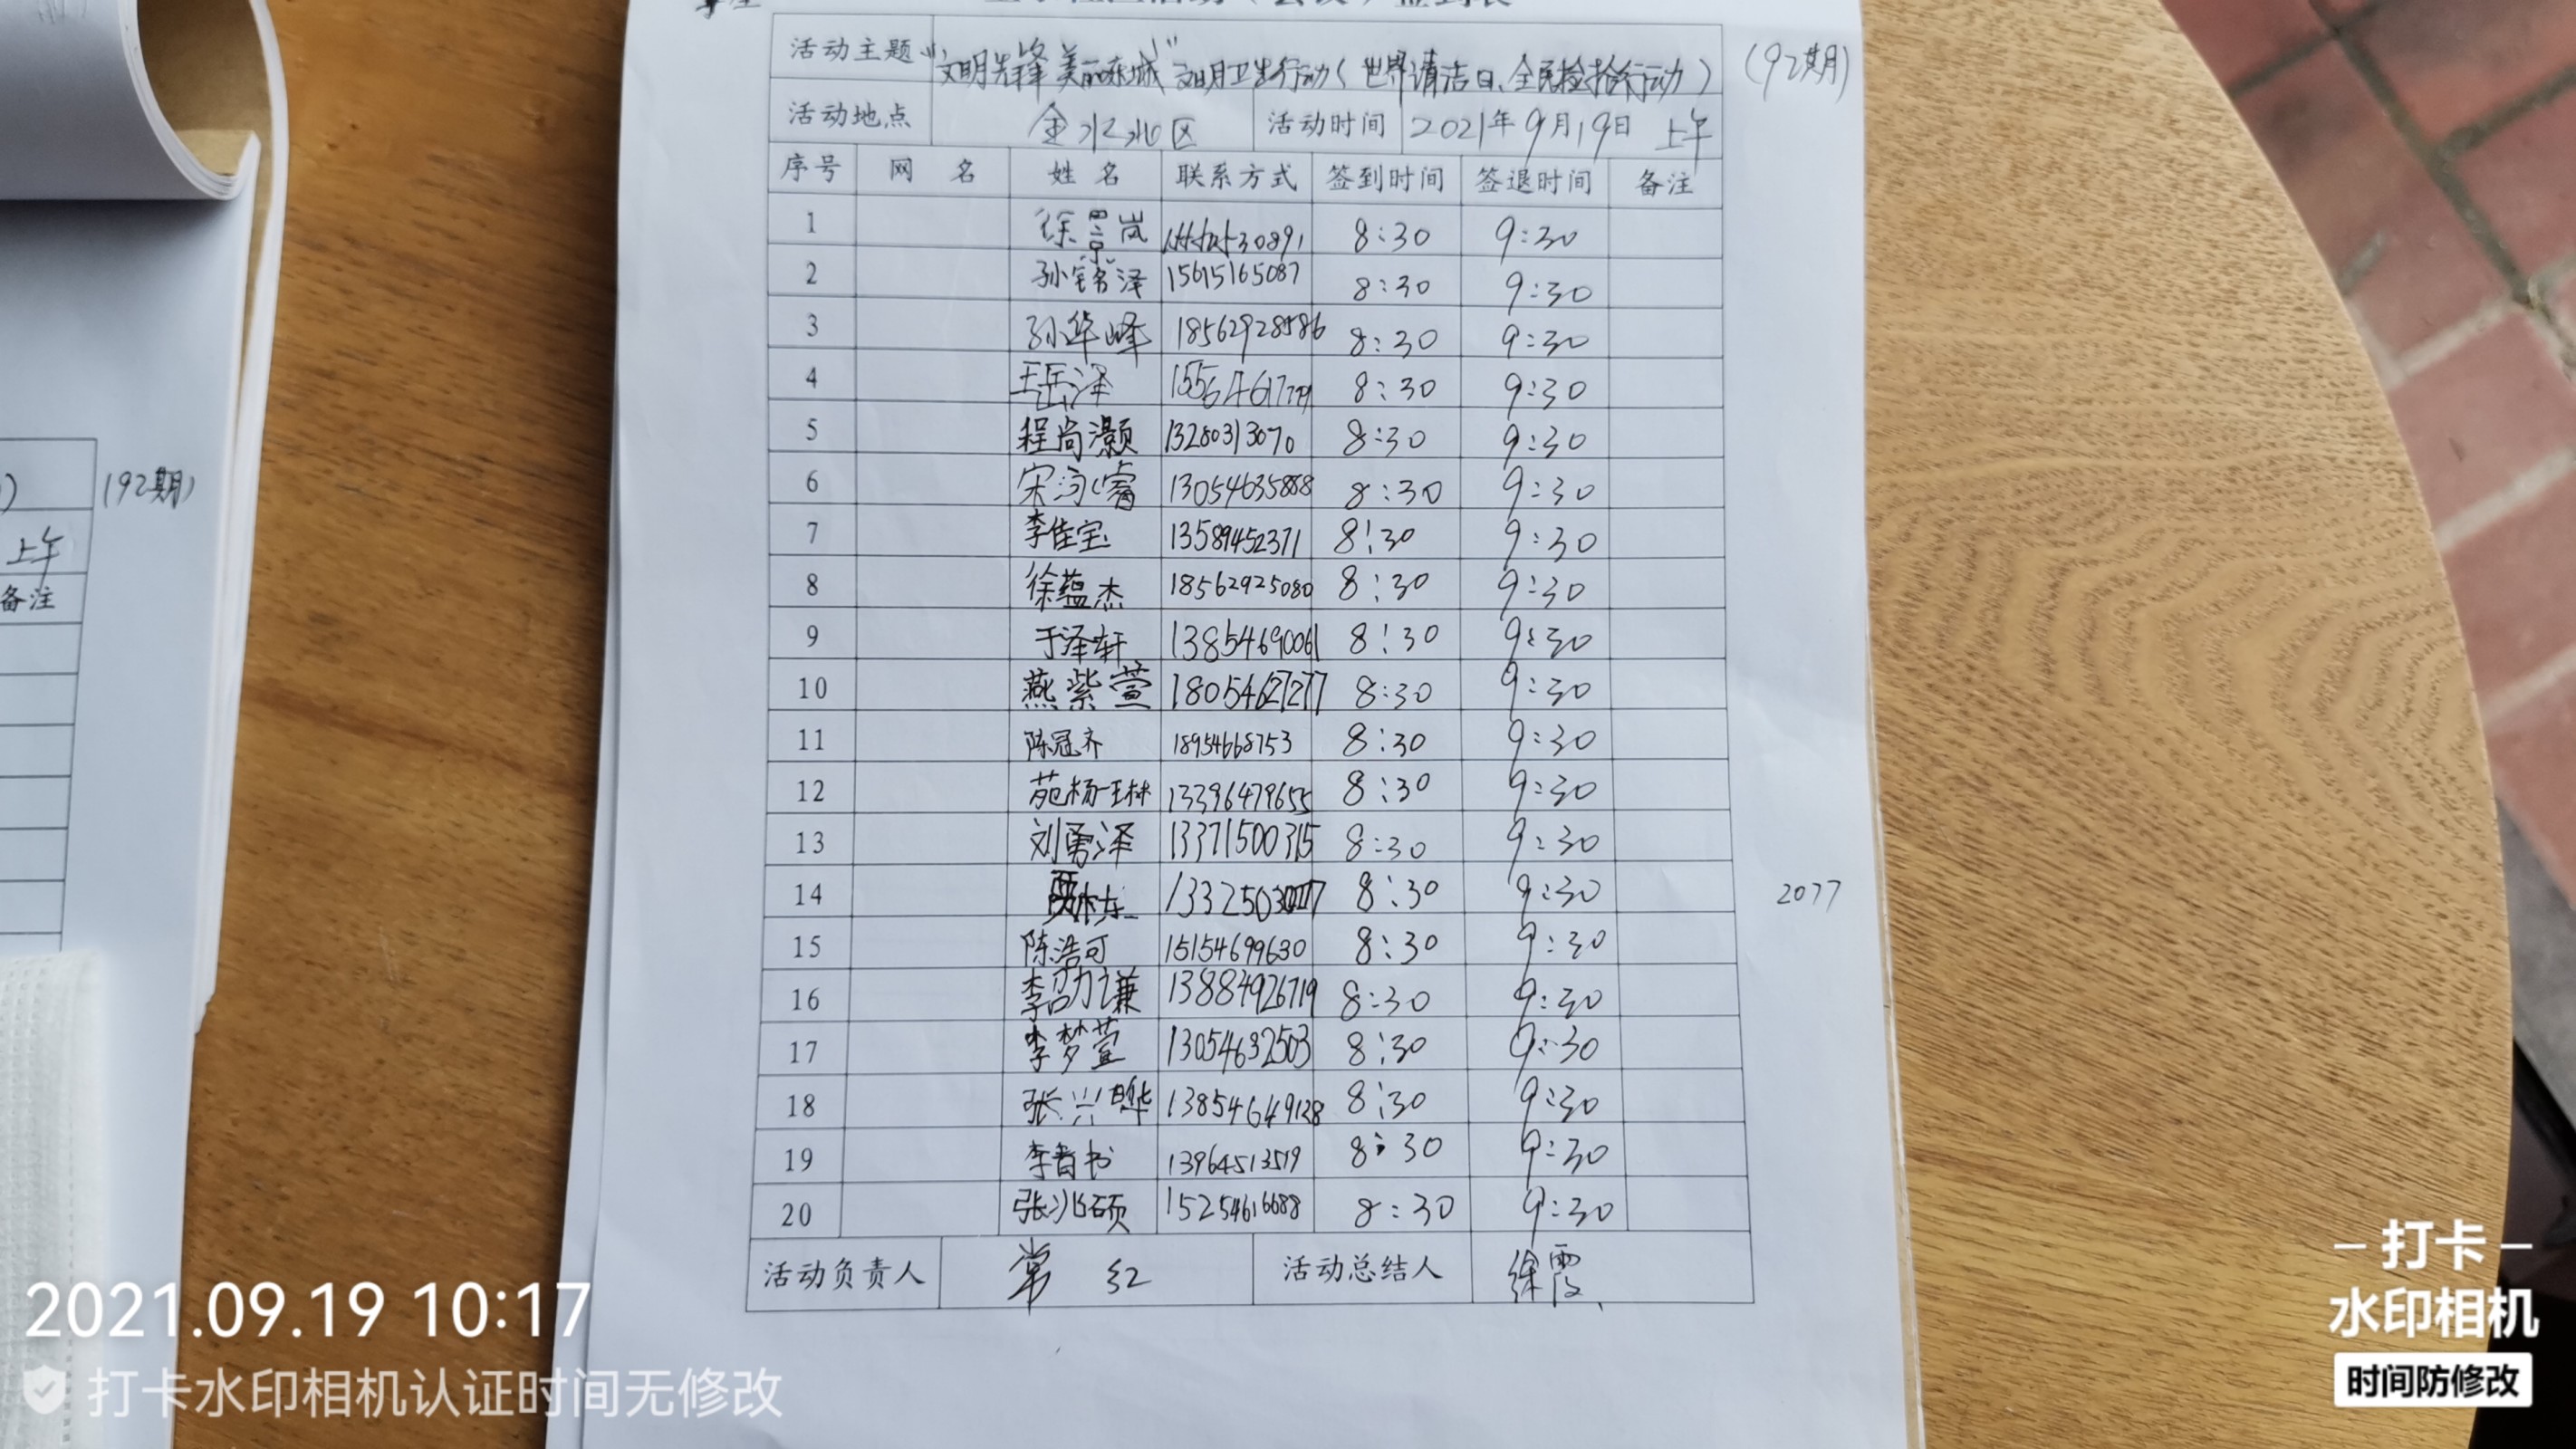 活动主题 "文明先锋 美丽东城" 文明卫生行动(世界请洁日、全民捡拾行动) (92期)
活动地点 金水北区 活动时间 2021年9月19日 上午
序号 网 名 姓 名 联系方式 签到时间 签退时间 备注
1 徐 岚 30891 8:30 9:30
2 孙铭泽 15615165087 8:30 9:30
3 孙华峰 18562928586 8:30 9:30
4 王岳泽 8:30 9:30
5 程尚灏 13280313070 8:30 9:30
6 宋 睿 13054635888 8:30 9:30
7 李佳宝 13589452371 8:30 9:30
8 徐蕴杰 18562925080 8:30 9:30
9 于泽轩 13854690061 8:30 9:30
10 燕紫萱 18054627277 8:30 9:30
11 陈冠齐 18954668753 8:30 9:30
12 苑杨琳 13396479655 8:30 9:30
13 刘勇泽 13371500315 8:30 9:30
14 8:30 9:30 2077
15 陈浩可 15154699630 8:30 9:30
16 李劭谦 13884926719 8:30 9:30
17 李梦萱 13054632503 8:30 9:30
18 张兴晔 13854649128 8:30 9:30
19 李 书 13964513519 8:30 9:30
20 张兆硕 15254616688 8:30 9:30
活动负责人 常 红 活动总结人 徐霞
(92期)
上午
备注
2021.09.19 10:17
打卡水印相机认证时间无修改
打卡
水印相机
时间防修改